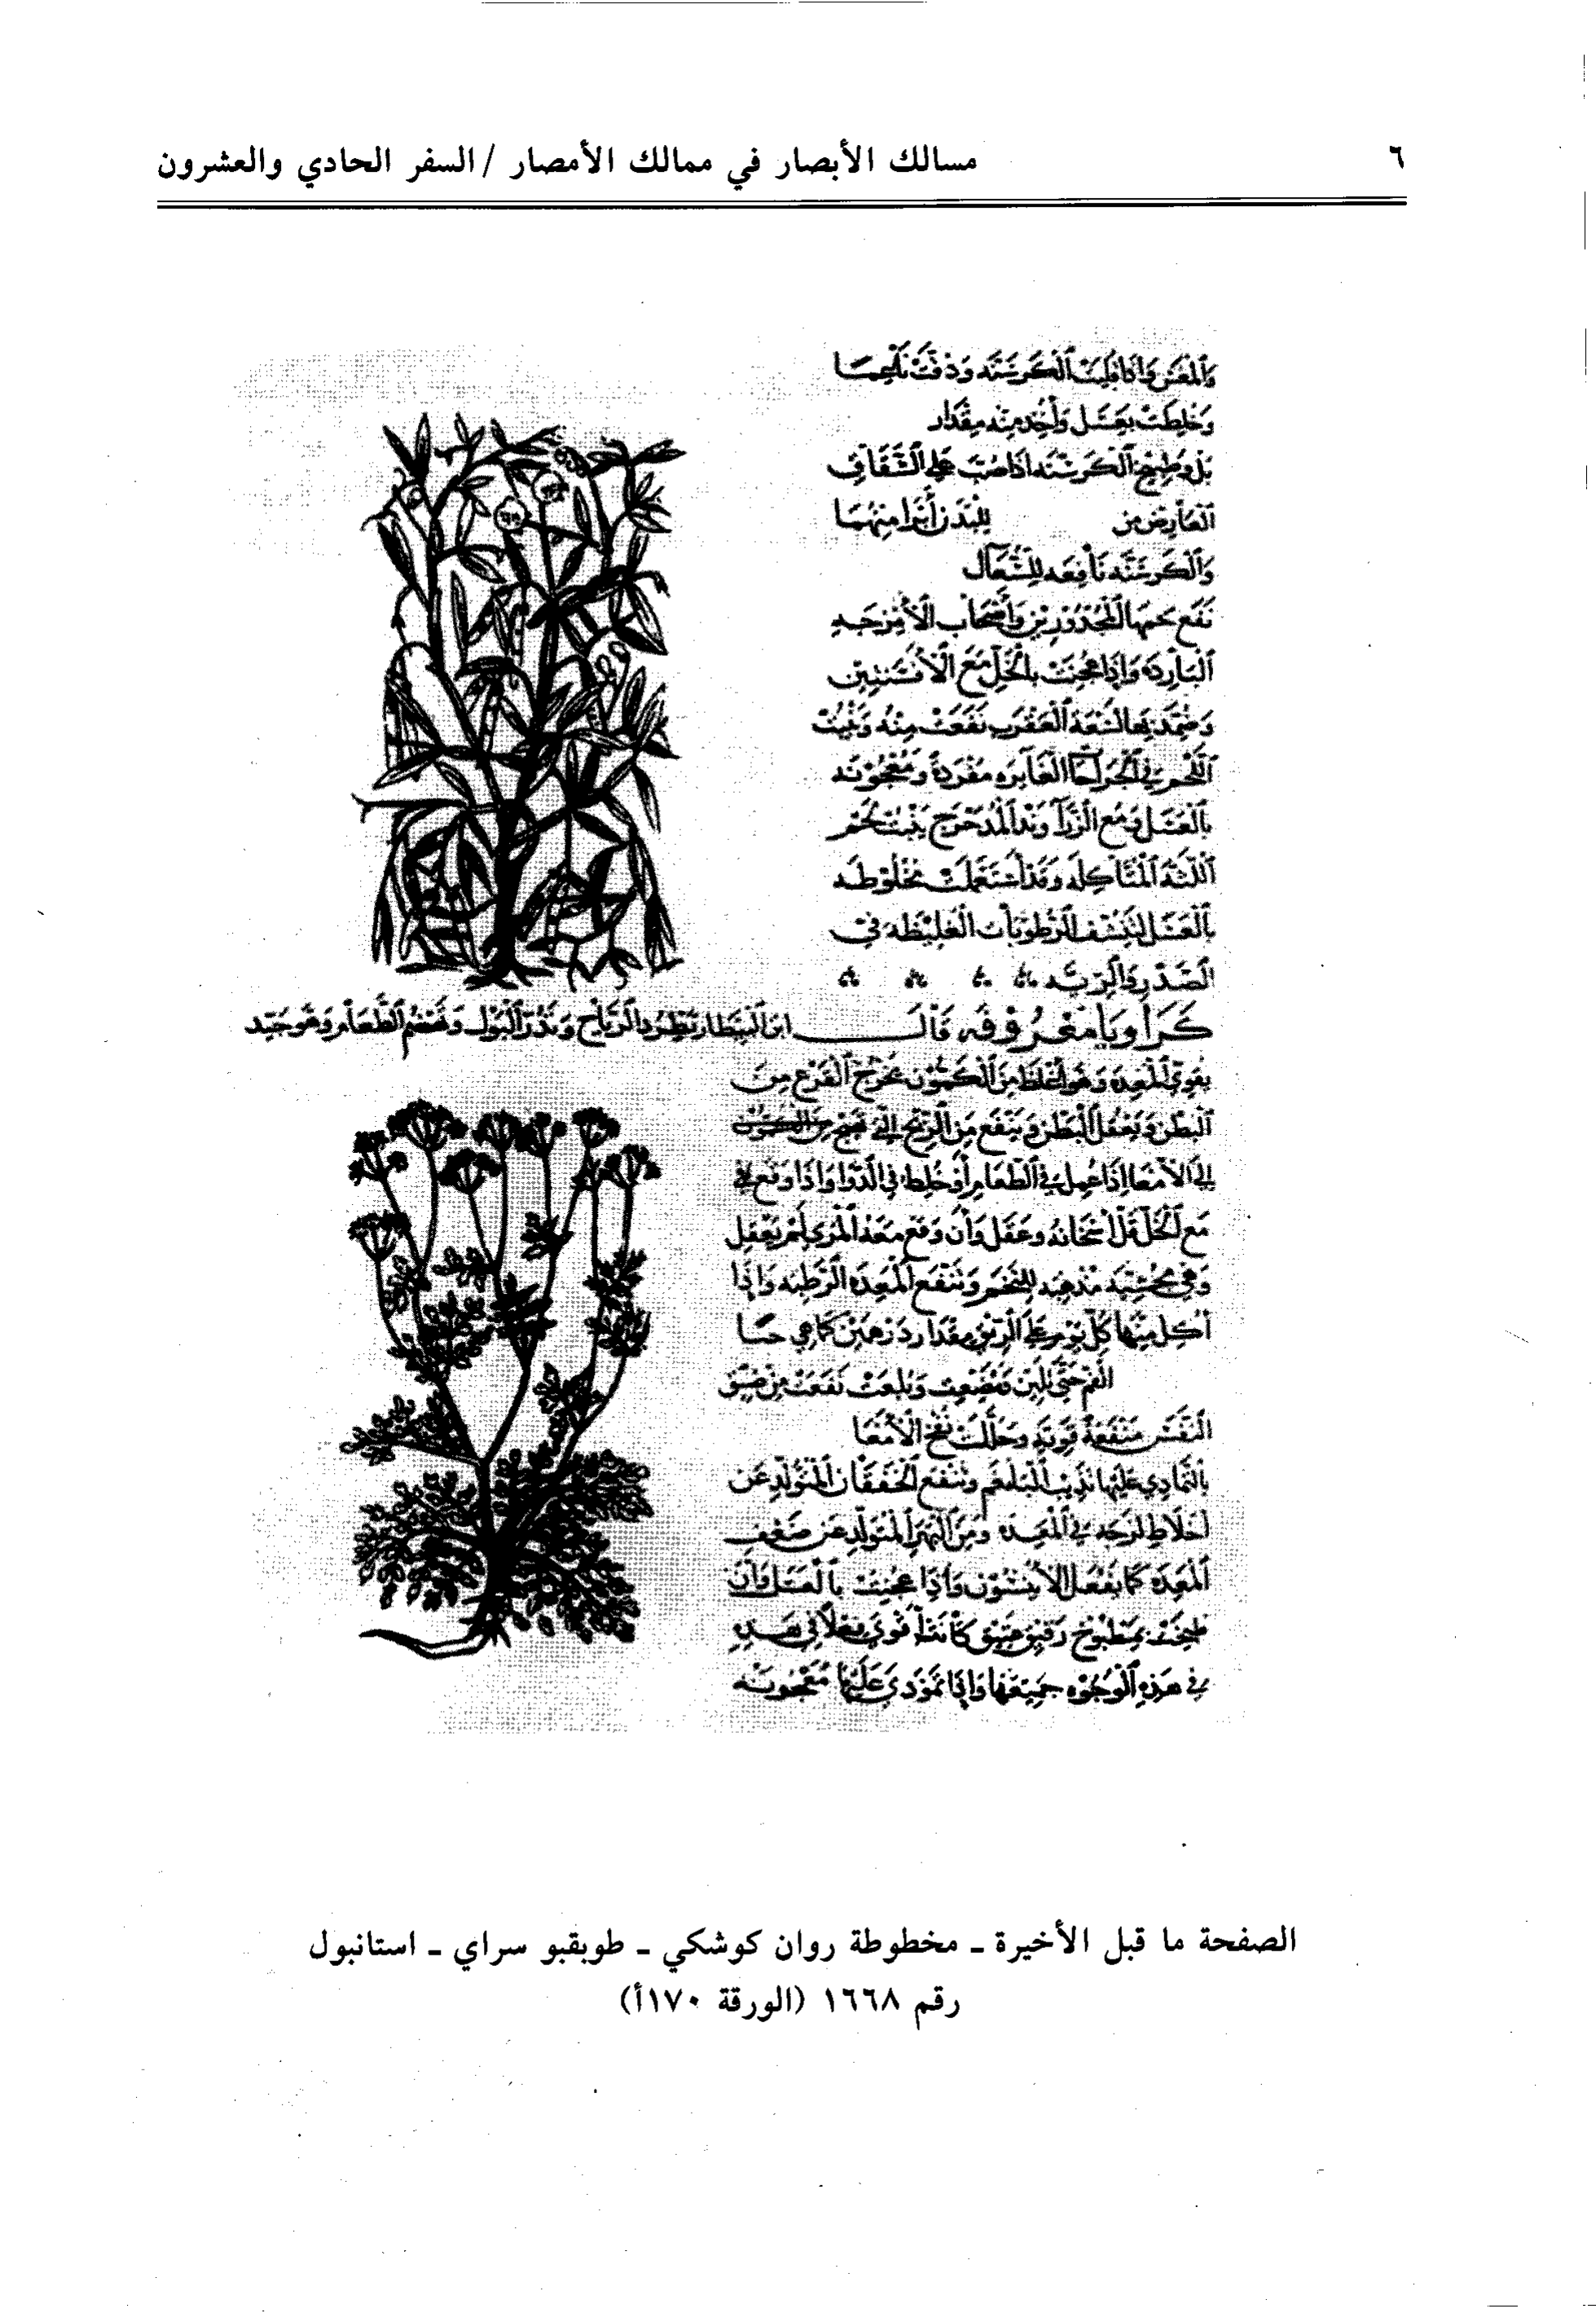 ٦
مسالك الأبصار في ممالك الأمصار / السفر الحادي والعشرون
والمغس وإذا قليت الكرسنه ودقت ناعما
وخلطت بعسل وأخذ منه مقدار
وطبيخ الكرسنه إذا صب على الشقاق
العارض من للبدن أبرا منهما
والكرسنه نافعه للسعال
نفع المجذورين وأصحاب الأمزجه
البارده وإذا عجنت بالخل مع الأفسنتين
وضمد بها لسعة العقرب نفعت منه وتنبت
اللحم في الجراحا الغايره مفردة ومعجونه
بالعسل ومع الزراوند المدحرج ينبت لحم
اللثه المتاكله وقد استعملت مخلوطه
بالعسل لتنشف الرطوبات الغليظه في
الصدر والريه
كراويا معروفه قالـــــ ابن البيطار تطرد الرياح وتدر البول وتهضم الطعام وهو جيد
يقوي المعده وهو أغلظ من الكمون يخرج القرع من
البطن ويعقل البطن وينفع من الريح التي تهيج
إلى الأمعا إذا عمل في الطعام أو خلط في الدوا وإذا وقع في
مع الخل قل اسخانه وعقل وأن وقع معه المري لم يعقل
وهي محشيه مذهبه للتخم وتنفع المعده الرطبه وإذا
أكل منها كل يوم على الريق مقدار درهمين كما هي حبا
الفم حتى تلين ومضغت وبلعت نفعت من ضيق
النفس منفعة قويه وحللت نفخ الأمعا
بالتمادي عليها تذيب البلغم وتنفع الخفقان المتولد عن
أخلاط لزجه في المعده ومن البهر المتولد عن ضعف
المعده كما يفعل الأنيسون وإذا عجنت بالعسل وأن
طبخت بمطبوخ رقيق عتيق كانت أقوى فعلا في هذه
في هذه الوجوه جميعها وإذا تمودي عليها معجونه
الصفحة ما قبل الأخيرة ـ مخطوطة روان كوشكي ـ طوبقبو سراي ـ استانبول
رقم ١٦٦٨ (الورقة ١٧٠أ)